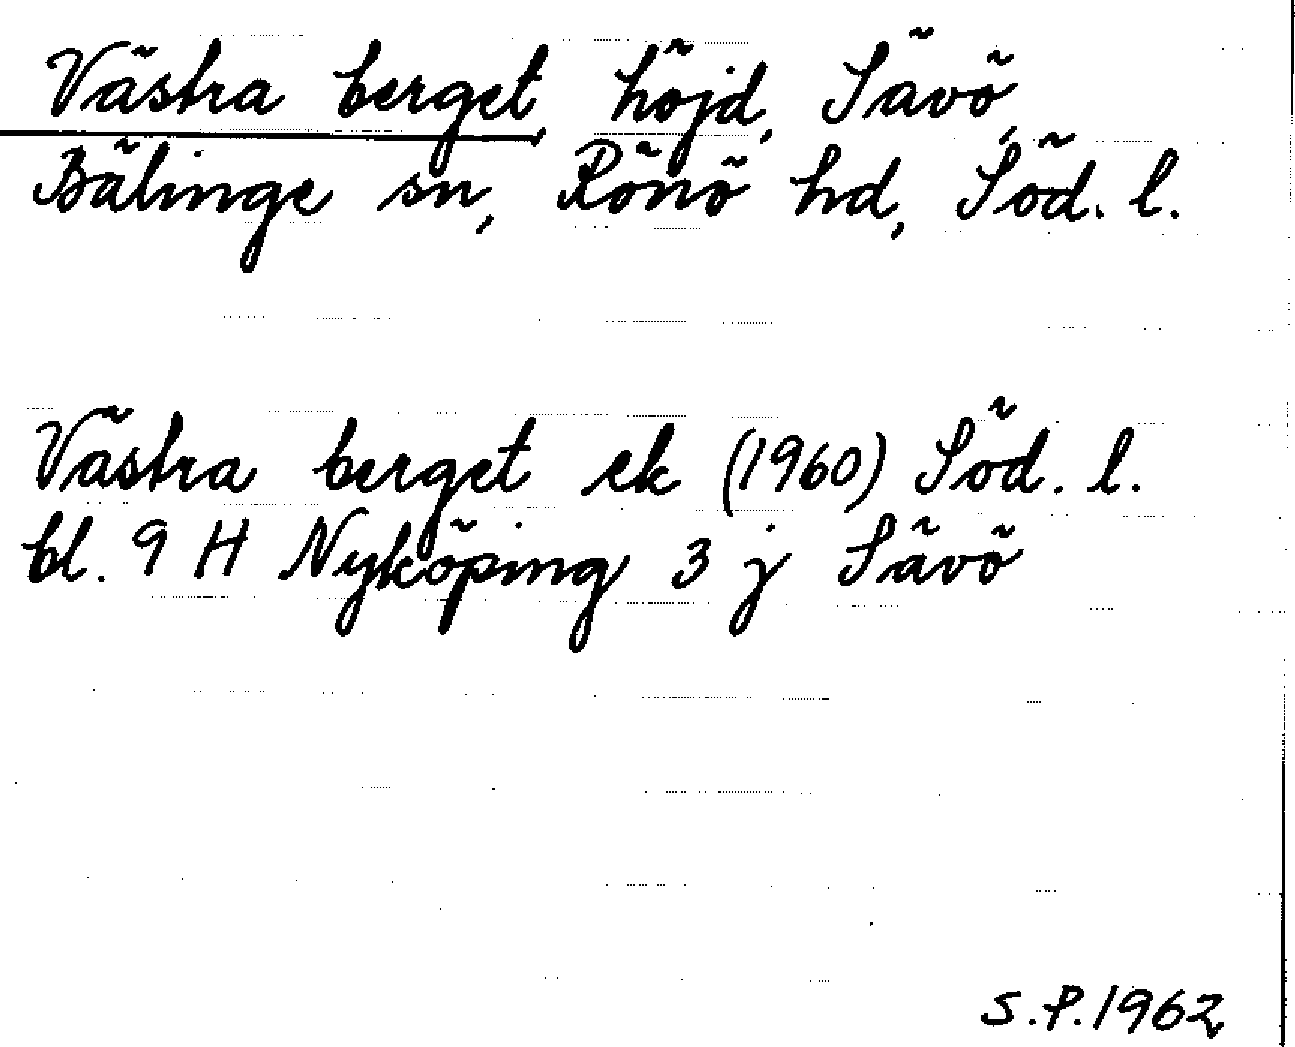 Västra berget, höjd, Sävö,
Bälinge sn, Rönö hd, Söd. l.
Västra berget ek (1960) Söd. l.
bl. 9 H Nyköping 3 j Sävö
S.P. 1962